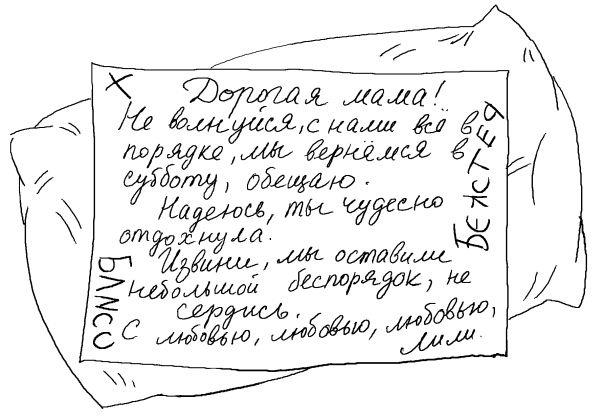 X
Дорогая мама!
Не волнуйся, с нами всё в
порядке, мы вернёмся в
субботу, обещаю.
Надеюсь, ты чудесно
отдохнула.
Извини, мы оставили
небольшой беспорядок, не
сердись.
С любовью, любовью, любовью,
Лили.
БЛИСС